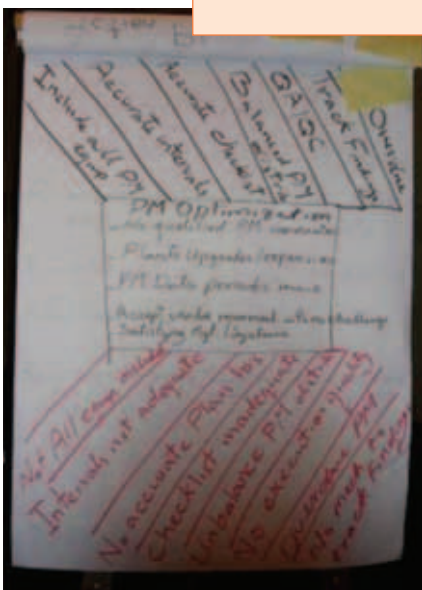 Include all PM
equip
Accurate intervals
Accurate checklist
Balanced PM
distrib
QA/QC
Track Findings
Overdue
PM Optimization
No qualified PM
Plants Upgrades/expansion
PM Data
Accept vendor
Satisfying Mgt
Not All equip included
Intervals not adequate
No accurate Plan for
Checklist inadequate
Unbalance PM distrib
No execution quality
Overdue PM
No mech to
track findings